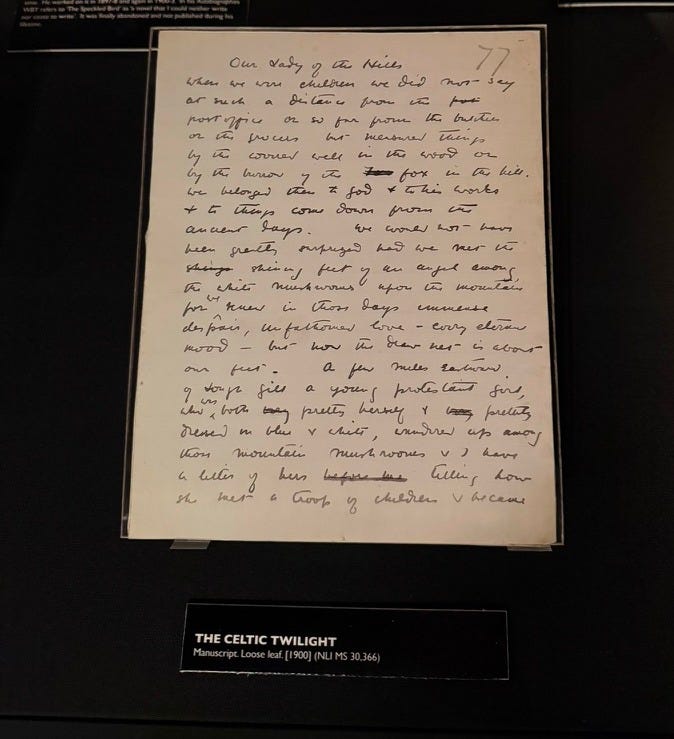 He worked on it in 1897-8 and again in 1900-2. In his Autobiographies
WBY refers to 'The Speckled Bird' as 'a novel that I could neither write
nor cease to write'. It was finally abandoned and not published during his
lifetime.
77
Our Lady of the Hills
when we were children we did not say
at such a distance from the
post office or so far from the butchers
or the grocers but measured things
by the covered well in the wood or
by the burrow of the fox in the hill.
we belonged then to God & to his works
& to things come down from the
ancient days. We would not have
been greatly surprized had we met the
shining feet of an angel among
the white mushrooms upon the mountain
for we knew in those days immense
despair, unfathomed love – every eternal
mood – but now the draw net is about
our feet. A few miles eastward
of Lough Gill a young protestant girl,
who was both pretty herself & prettily
dressed in blue & white, wandered up among
those mountain mushrooms & I have
a letter of hers before me telling how
she met a troop of children & became
THE CELTIC TWILIGHT
Manuscript. Loose leaf. [1900] (NLI MS 30,366)